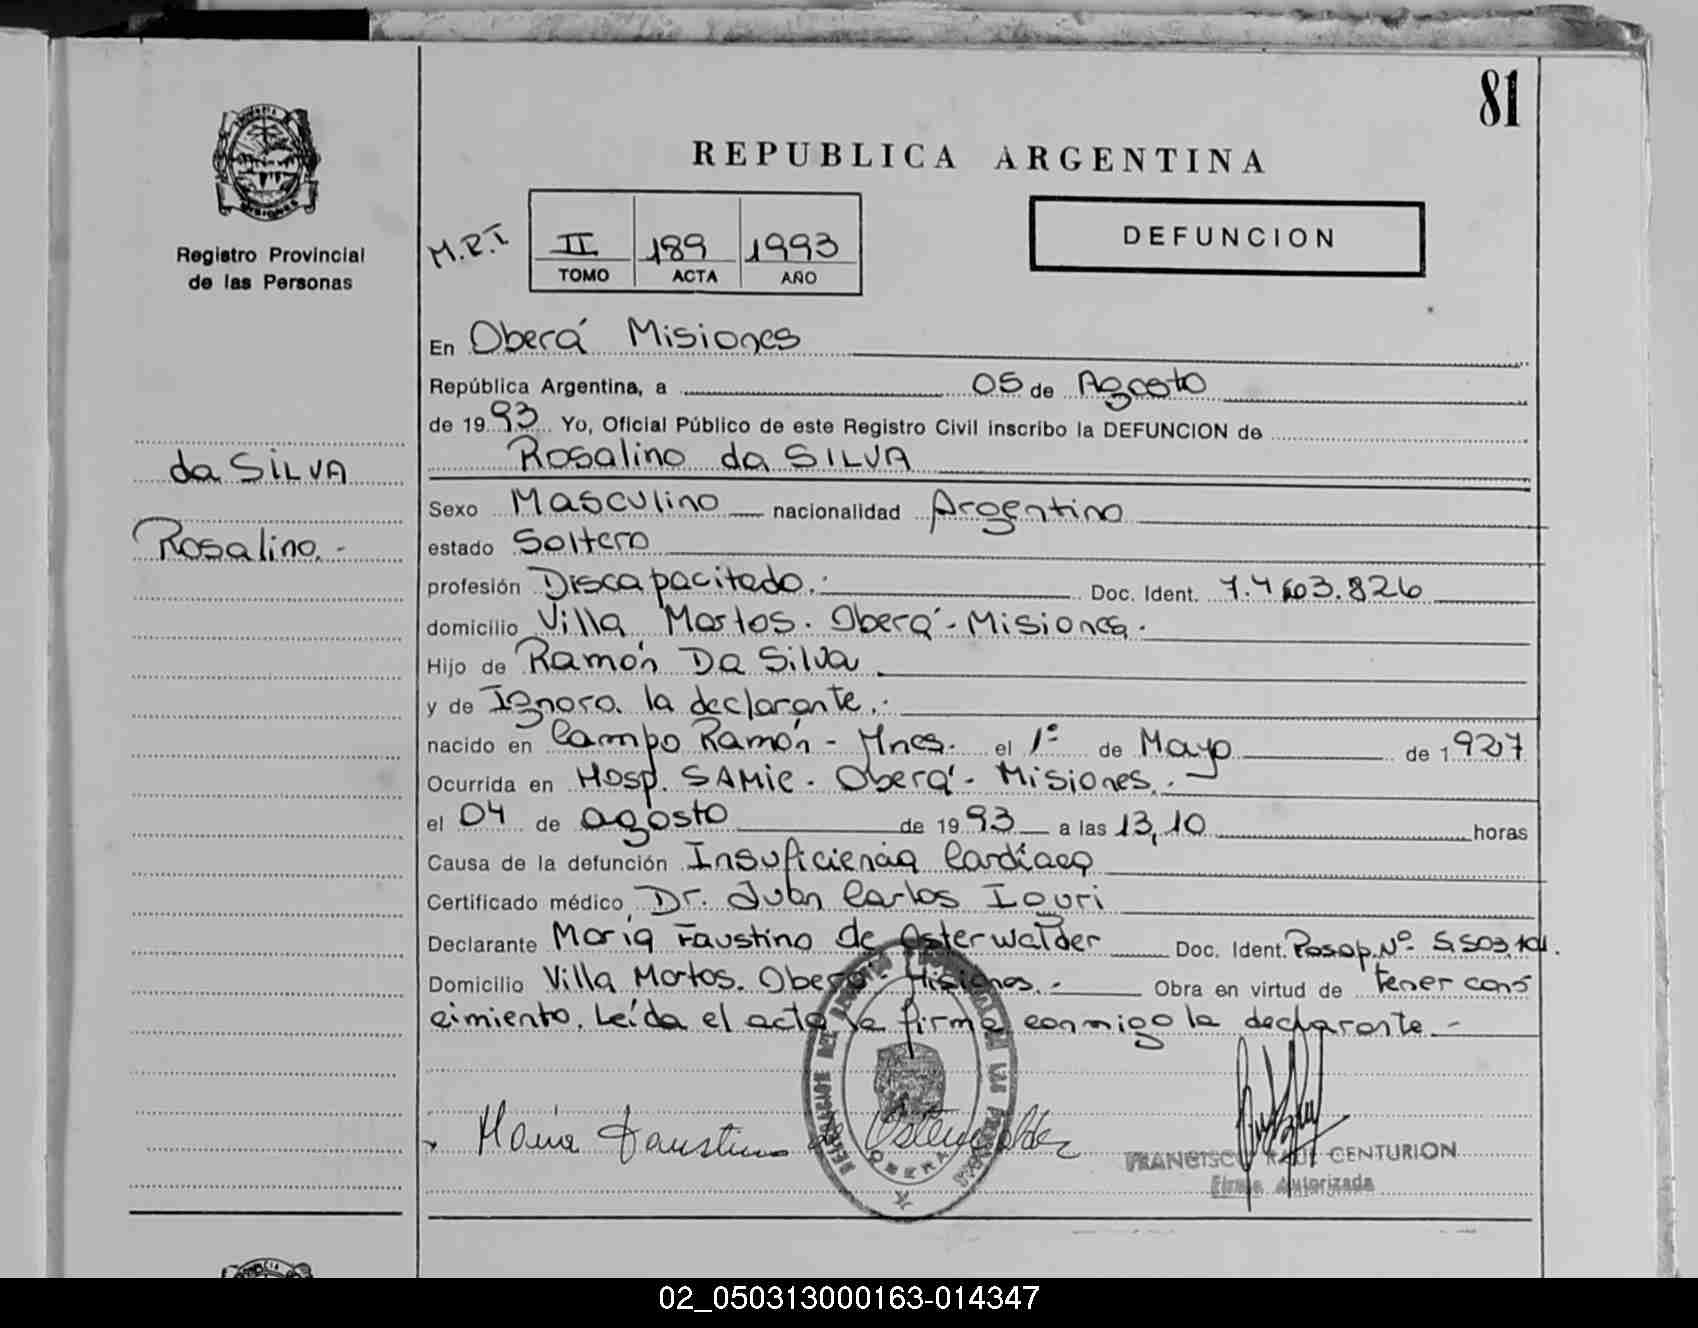 81
REPUBLICA ARGENTINA
PROVINCIA
MISIONES
Registro Provincial
de las Personas
M.R.I
II 189 1993
TOMO ACTA AÑO
DEFUNCION
En Oberá Misiones
República Argentina, a 05 de Agosto
de 1993 Yo, Oficial Público de este Registro Civil inscribo la DEFUNCION de
Rosalino da SILVA
da SILVA
Rosalino.-
Sexo Masculino nacionalidad Argentino
estado Soltero
profesión Discapacitado.- Doc. Ident. 7.4 03.826
domicilio Villa Martos. Oberá - Misiones.
Hijo de Ramón Da Silva
y de Ignora la declarante.-
nacido en Campo Ramón - Mnes. el 1º de Mayo de 1927
Ocurrida en Hosp. SAMIC - Oberá - Misiones.-
el 04 de agosto de 1993 a las 13,10 horas
Causa de la defunción Insuficiencia Cardíaca
Certificado médico Dr. Juan Carlos Iouri
Declarante María Faustino de Osterwalder Doc. Ident. Pasap. Nº 5.503.101.
Domicilio Villa Martos. Oberá - Misiones.- Obra en virtud de tener cono
cimiento. Leída el acta la firma conmigo la declarante.-
María Faustino de Osterwalder
OBERA
FRANCISCO RAUL CENTURION
Firma Autorizada
02_050313000163-014347